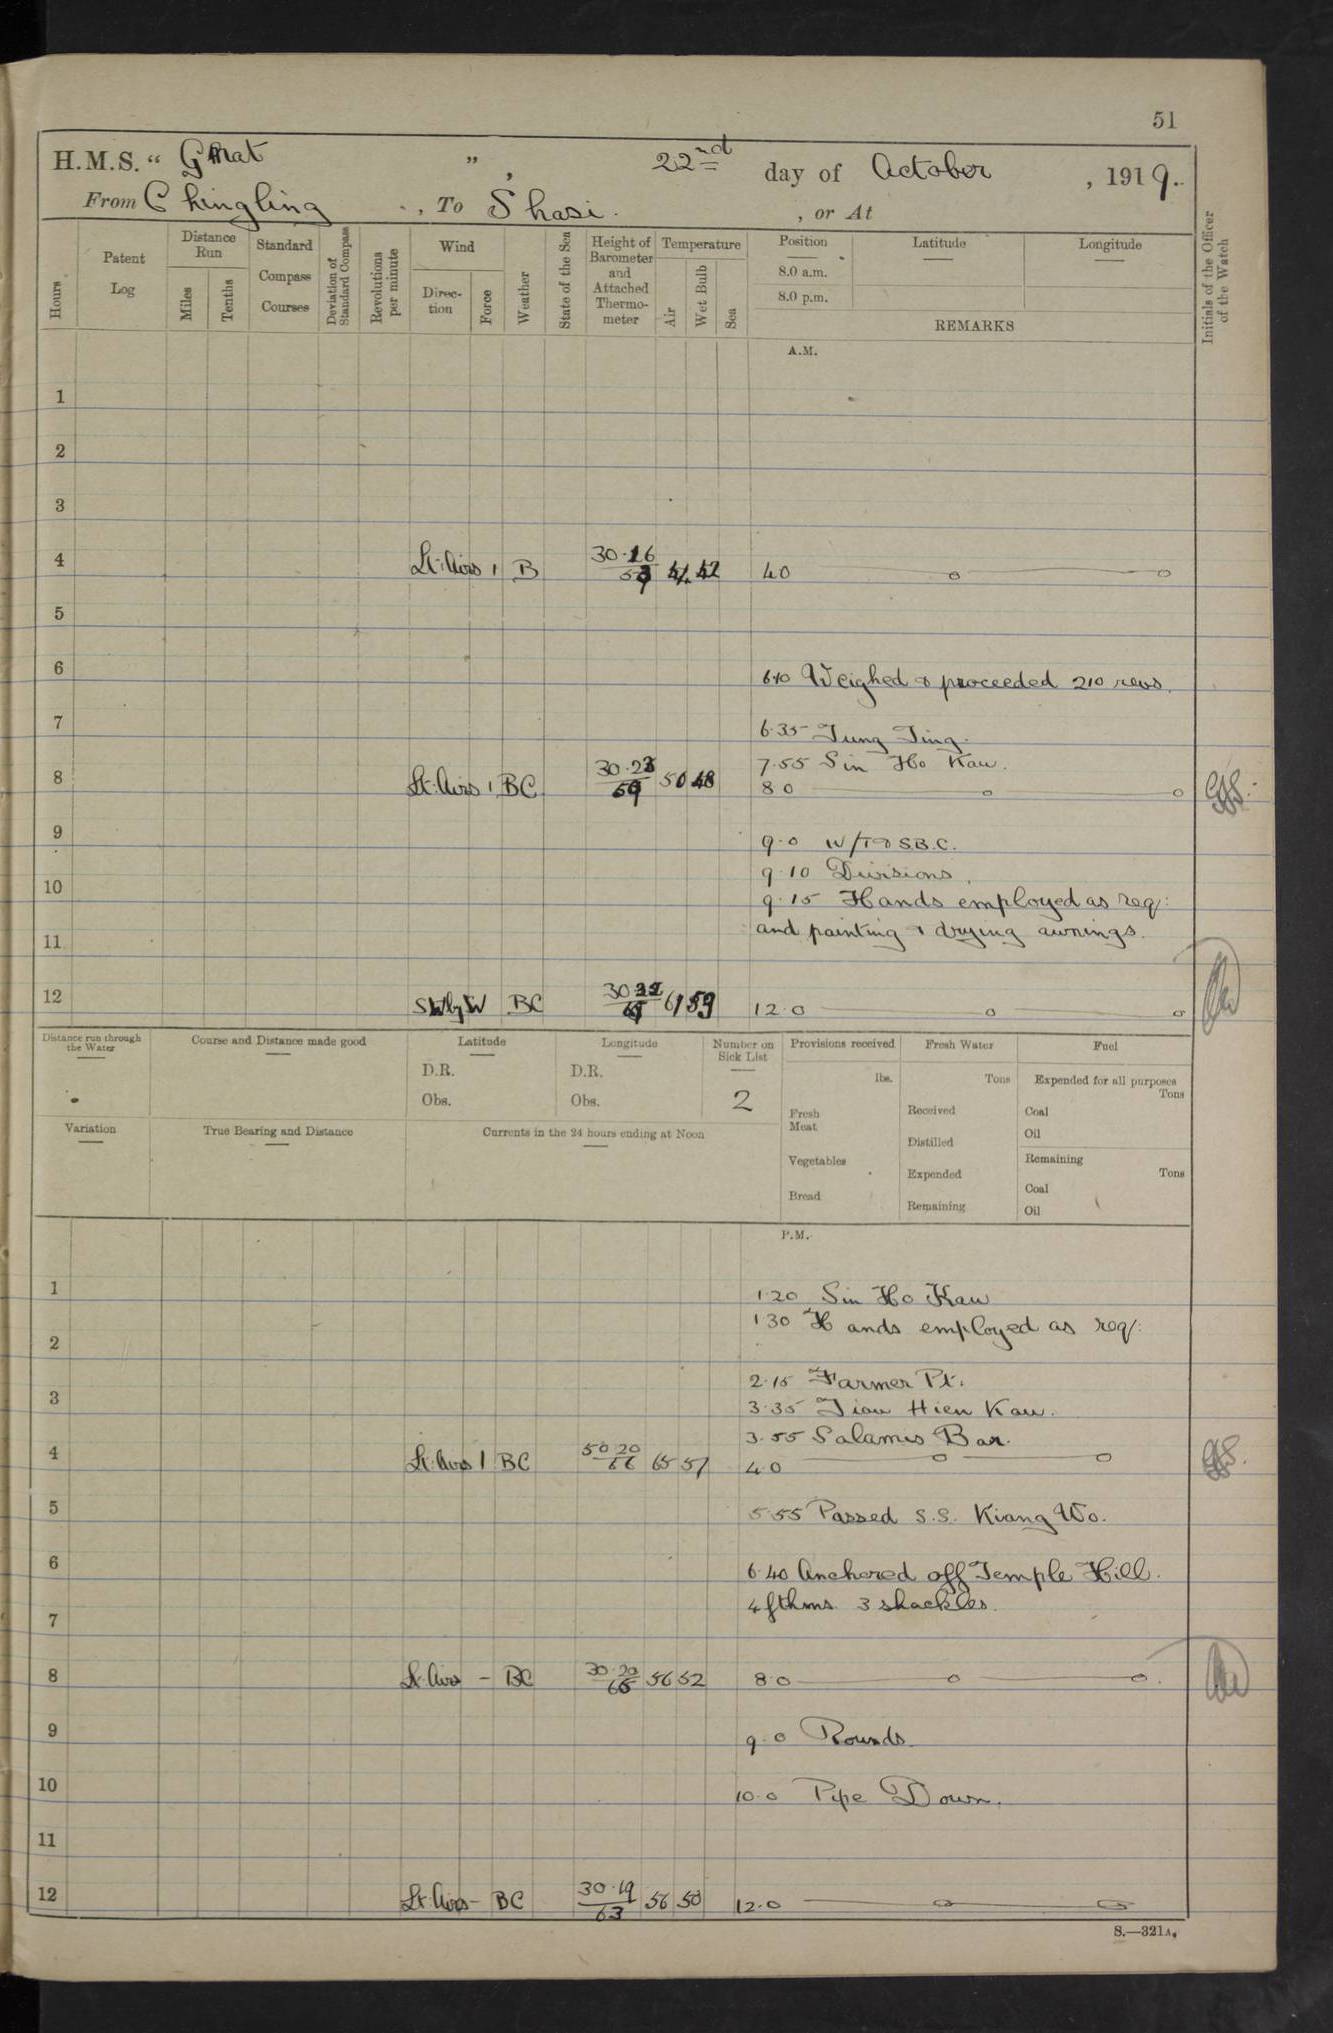 51
H.M.S. “ Gnat ” , 22nd day of October , 1919.
From Chingling , To Shasi. , or At
Hours
Patent Log
Distance Run
Miles
Tenths
Standard Compass Courses
Deviation of Standard Compass
Revolutions per minute
Wind
Direction
Force
Weather
State of the Sea
Height of Barometer and Attached Thermometer
Temperature
Air
Wet Bulb
Sea
Position
8.0 a.m.
8.0 p.m.
Latitude
Longitude
REMARKS
Initials of the Officer of the Watch
A.M.
1
2
3
4 Lt. Airs 1 B 30.16 4.0
5
6 6.10 Weighed & proceeded 210 revs.
7 6.35 Tung Ting.
7.55 Sin Ho Kau.
8 Lt. Airs 1 BC 50 48 8.0
9 9.0 W/T & S.B.C.
9.10 Divisions.
10 9.15 Hands employed as req:
and painting & drying awnings.
11
12 BC 61 59 12.0
Distance run through the Water
Course and Distance made good
Latitude
D.R.
Obs.
Longitude
D.R.
Obs.
Number on Sick List
2
Provisions received
lbs.
Fresh Meat
Vegetables
Bread
Fresh Water
Tons
Received
Distilled
Expended
Remaining
Fuel
Expended for all purposes
Tons
Coal
Oil
Remaining
Tons
Coal
Oil
Variation
True Bearing and Distance
Currents in the 24 hours ending at Noon
P.M.
1 1.20 Sin Ho Kau
1.30 Hands employed as req:
2
2.15 Farmer Pt.
3 3.35 Tiau Hien Kau.
3.55 Salamis Bar.
4 Lt. Airs 1 BC 50 20 66 65 57 4.0
5 5.55 Passed S.S. Kiang Wo.
6 6.40 Anchored off Temple Hill.
4 fthms 3 shackles.
7
8 Lt. Airs - BC 30.20 66 56 52 8.0
9 9.0 Rounds.
10 10.0 Pipe Down.
11
12 Lt. Airs - BC 30.19 63 56 50 12.0
S.—321A.